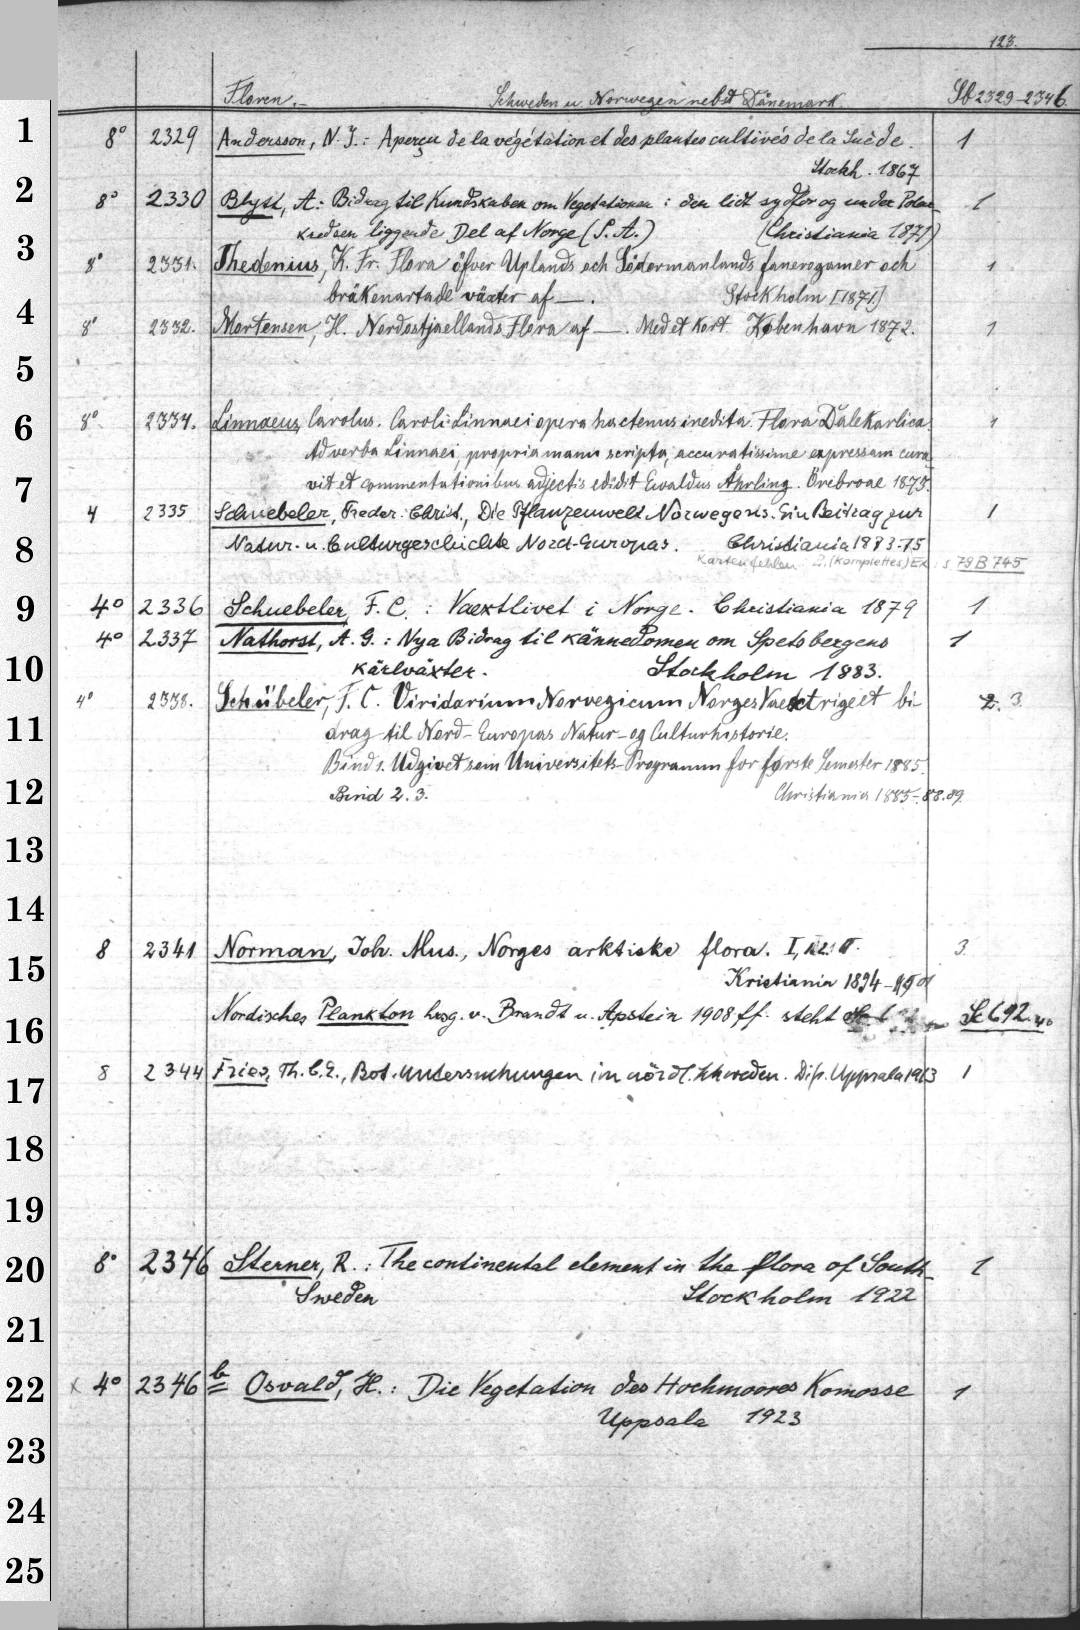 123.
Floren. Schweden u. Norwegen nebst Dänemark. Sb 2329-2346
1 8° 2329 Andersson, N. J.: Aperçu de la végétation et des plantes cultivés de la Suède. 1
Stockh. 1867
2 8° 2330 Blytt, A: Bidrag til Kundskaben om Vegetationen i den lidt sydfor og under Polar- 1
kredsen liggende Del af Norge (S. A.) (Christiania 1871)
3 8° 2331. Thedenius, K. Fr. Flora öfver Uplands och Södermanlands fanerogamer och 1
bräkenartade växter af —. Stockholm [1871]
4 8° 2332. Mortensen, H. Nordostsjaellands Flora af —. Med et Kort. København 1872. 1
5
6 8° 2334. Linnaeus, Carolus. Caroli Linnaei opera hactenus inedita. Flora Dalekarlica. 1
Ad verba Linnaei, propria manu scripta, accuratissime expressam cura-
7 vit et commentationibus adjectis edidit Ewaldus Ährling. Örebroae 1873.
4 2335 Schuebeler, Freder. Christ., Die Pflanzenwelt Norwegens. Ein Beitrag zur 1
8 Natur- u. Culturgeschichte Nord-Europas. Christiania 1873-75
Karten fehlen 2. (komplettes) Ex. s 79 B 745
9 4° 2336 Schuebeler, F. C. : Vaextlivet i Norge. Christiania 1879 1
4° 2337 Nathorst, A. G.: Nya Bidrag til kännedomen om Spetsbergens 1
10 kärlväxter. Stockholm 1883.
4° 2338. Schübeler, F. C. Viridarium Norvegicum Norges Vaextrige et bi- 2. 3.
11 drag til Nord-Europas Natur- og Culturhistorie.
Bind 1. Udgivet som Universitets-Programm for første Semester 1885.
12 Bind 2. 3. Christiania 1885-88.89.
13
14
8 2341 Norman, Joh. Mus., Norges arktiske flora. I, 3.
15 Kristiania 1894-1901
Nordisches Plankton hrsg. v. Brandt u. Apstein 1908 ff. steht Sc 692. 4°
16
17 8 2344 Fries, Th. C. E., Bot. Untersuchungen im nördl. Schweden. Diss. Uppsala 1913 1
18
19
20 8° 2346 Sterner, R. : The continental element in the flora of South- 1
Sweden Stockholm 1922
21
22 x 4° 2346 b Osvald, H. : Die Vegetation des Hochmoores Komosse 1
Uppsala 1923
23
24
25